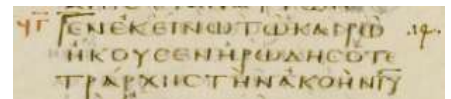 ϞΓ ΕΝΕΚΕΙΝΩΤΩΚΑΙΡΩ .14.
ΗΚΟΥϹΕΝΗΡΩΔΗϹΟΤΕ
ΤΡΑΡΧΗϹΤΗΝΑΚΟΗΝΙ̅Υ̅